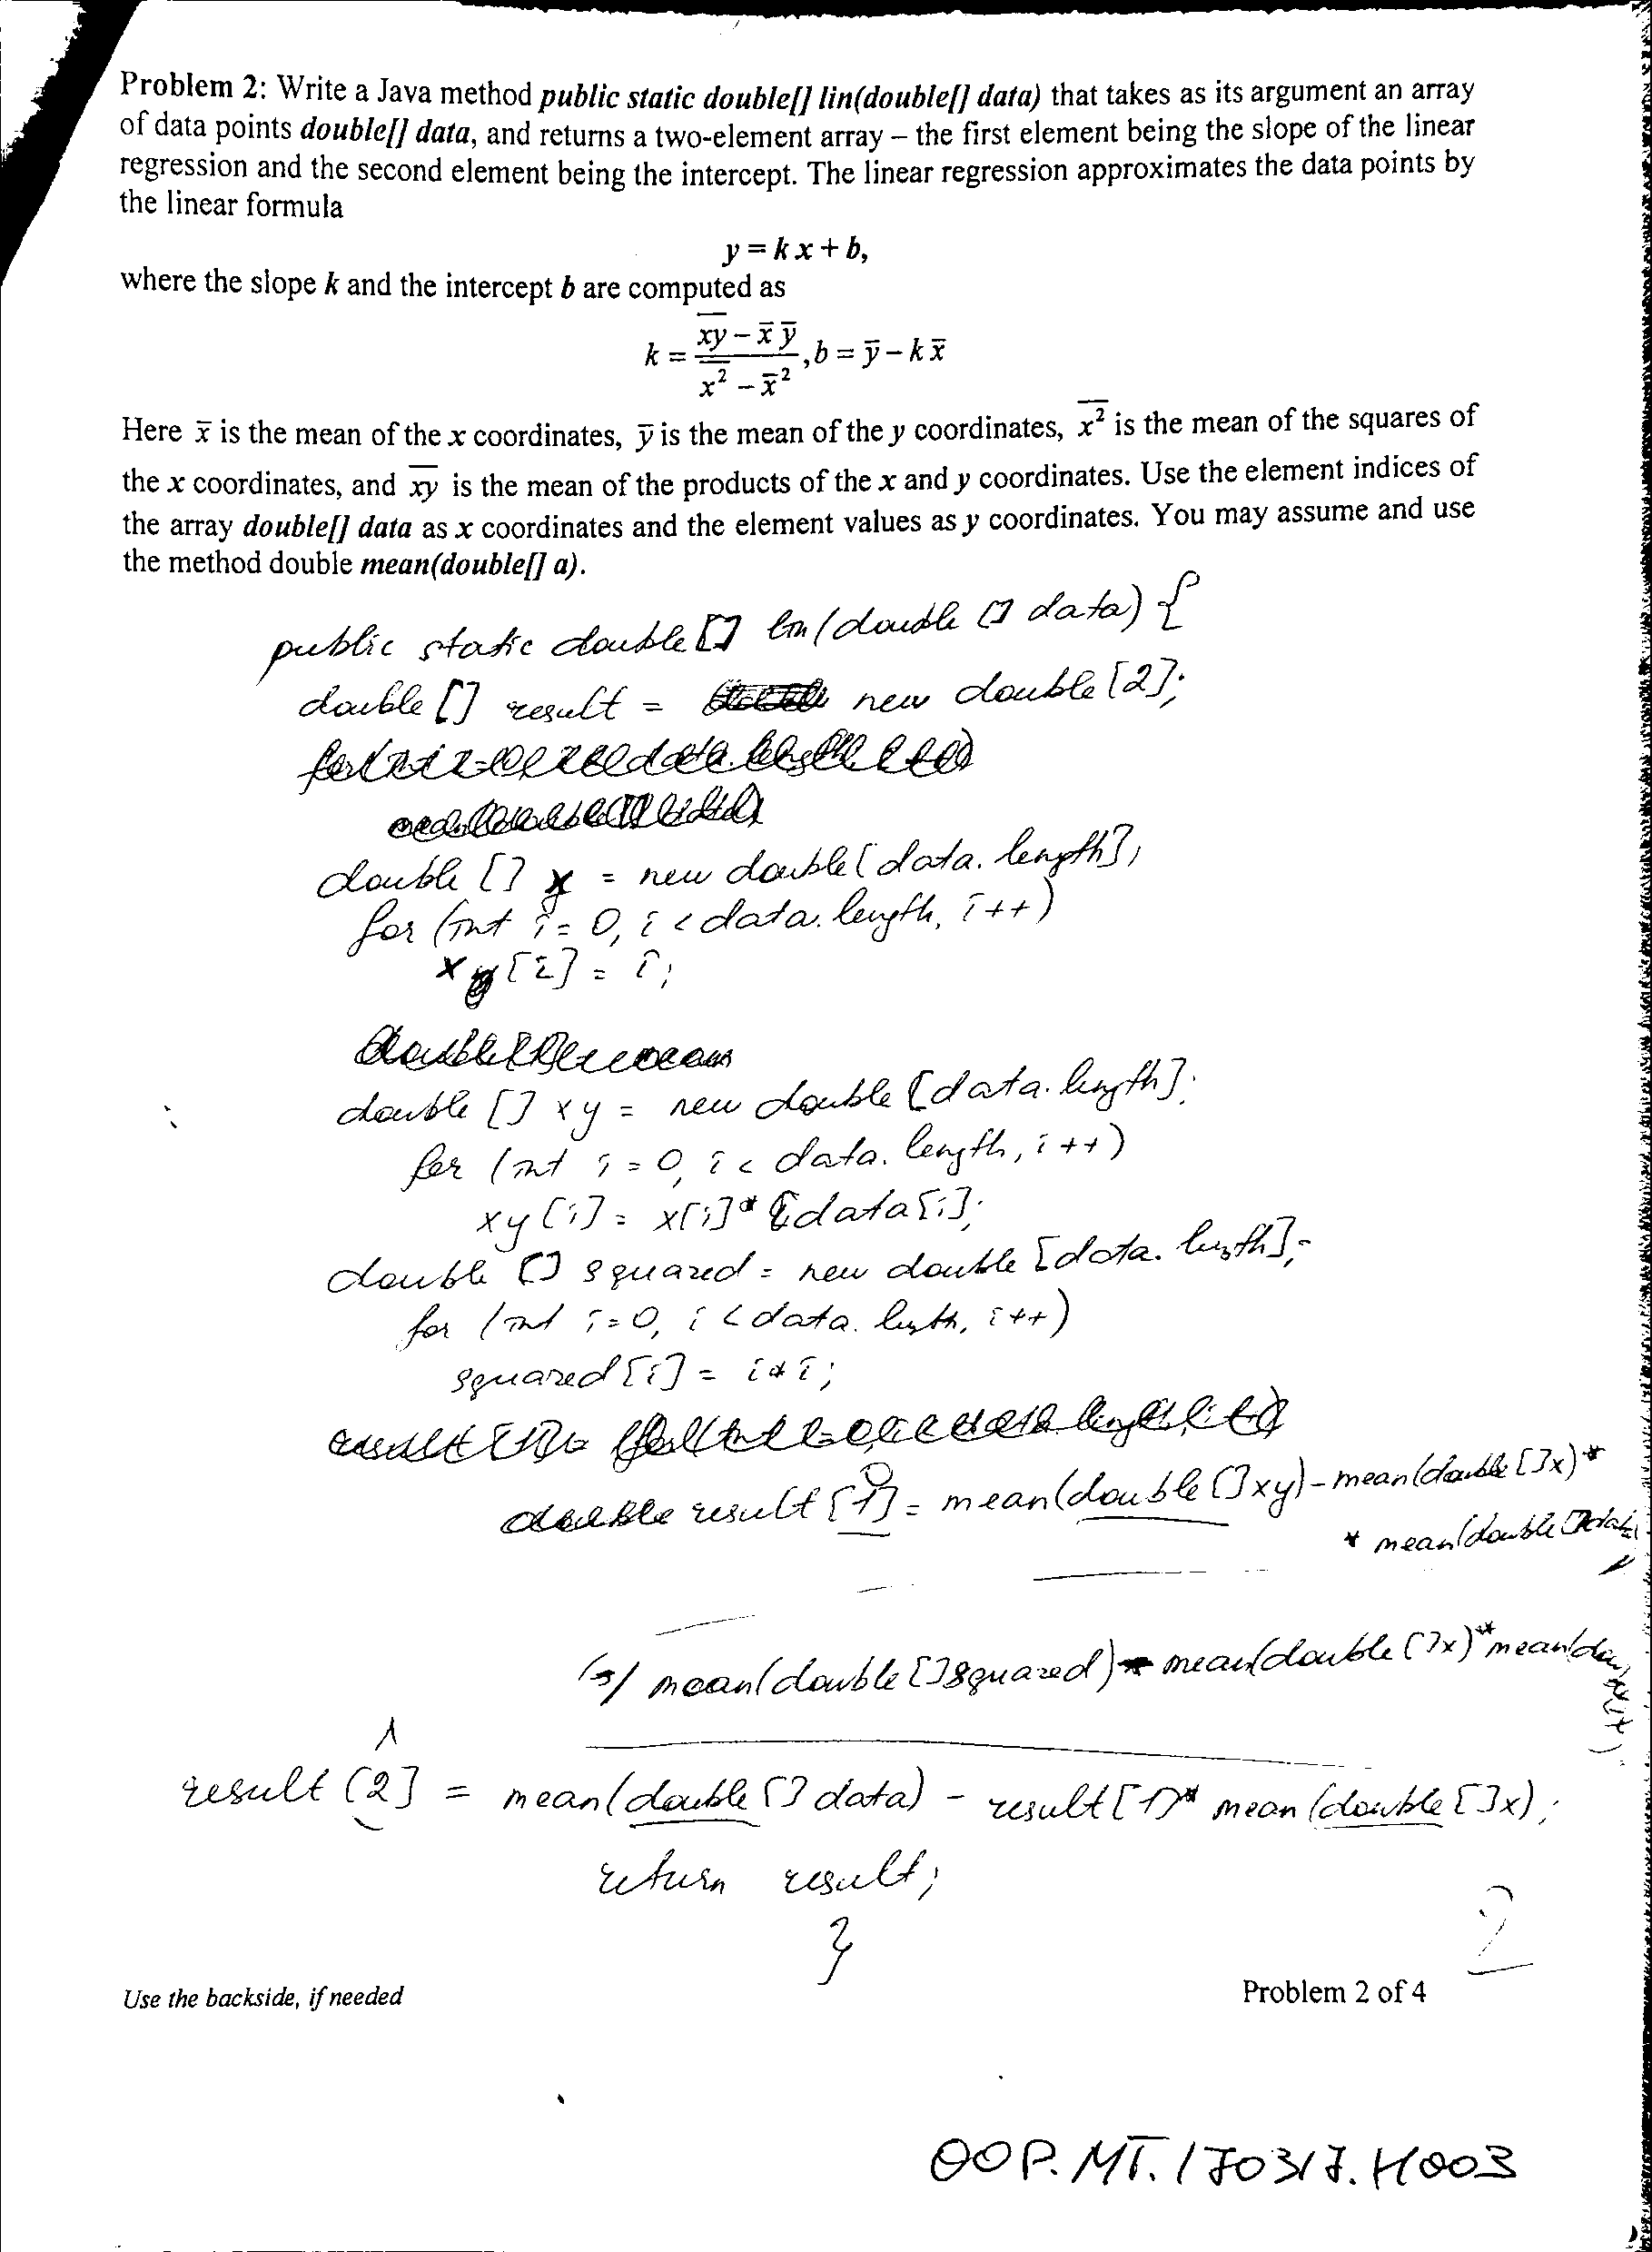 Problem 2: Write a Java method public static double[] lin(double[] data) that takes as its argument an array
of data points double[] data, and returns a two-element array – the first element being the slope of the linear
regression and the second element being the intercept. The linear regression approximates the data points by
the linear formula
y = k x + b,
where the slope k and the intercept b are computed as
k = (\overline{xy} − x̄ ȳ) / (\overline{x²} − x̄²), b = ȳ − k x̄
Here x̄ is the mean of the x coordinates, ȳ is the mean of the y coordinates, \overline{x²} is the mean of the squares of
the x coordinates, and \overline{xy} is the mean of the products of the x and y coordinates. Use the element indices of
the array double[] data as x coordinates and the element values as y coordinates. You may assume and use
the method double mean(double[] a).
public static double[] lin(double [] data) {
double [] result = new double[2];
double [] x = new double[data.length];
for (int i = 0, i < data.length, i++)
x [i] = i;
double [] xy = new double [data.length];
for (int i = 0, i < data.length, i++)
xy[i] = x[i]* data[i];
double [] squared = new double [data.length];
for (int i=0, i < data.length, i++)
squared[i] = i*i;
result [1] = mean(double []xy) - mean(double []x)*
0
* mean(double []data
/ mean(double []squared) - mean(double []x)* mean(
1
result [2] = mean(double [] data) - result[1]* mean(double []x);
return result;
}
2
Use the backside, if needed
Problem 2 of 4
OOP.MT.170317.H003